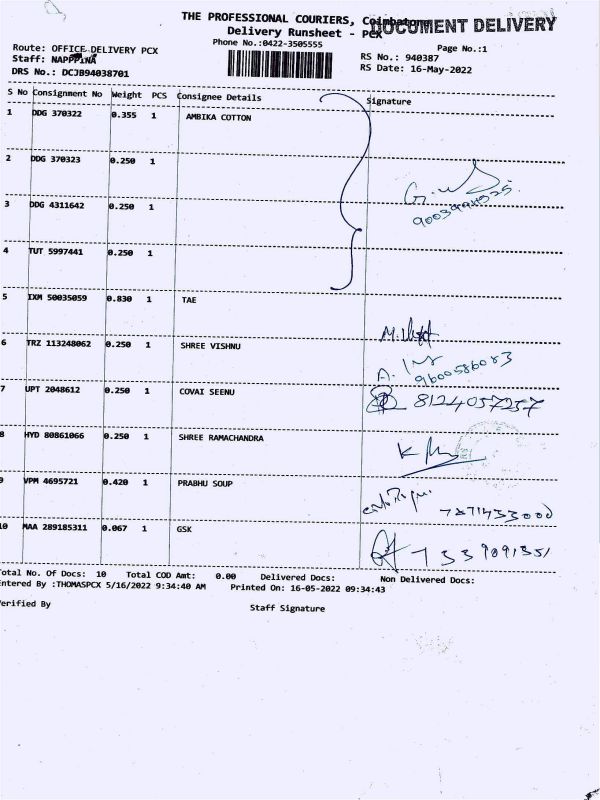 THE PROFESSIONAL COURIERS, Coimbatore
DOCUMENT DELIVERY
Delivery Runsheet - PCX
Phone No.:0422-3505555
Page No.:1
Route: OFFICE DELIVERY PCX
RS No.: 940387
Staff: NAPPPINA
RS Date: 16-May-2022
DRS No.: DCJB94038701
S No Consignment No Weight PCS Consignee Details Signature
1 DDG 370322 0.355 1 AMBIKA COTTON
2 DDG 370323 0.250 1
3 DDG 4311642 0.250 1
4 TUT 5997441 0.250 1
5 IXM 50035059 0.830 1 TAE
6 TRZ 113248062 0.250 1 SHREE VISHNU
9600586083
7 UPT 2048612 0.250 1 COVAI SEENU 8124057257
8 HYD 80861066 0.250 1 SHREE RAMACHANDRA
9 VPM 4695721 0.420 1 PRABHU SOUP
7871433000
10 MAA 289185311 0.067 1 GSK
7339091351
Total No. Of Docs: 10 Total COD Amt: 0.00 Delivered Docs: Non Delivered Docs:
Entered By :THOMASPCX 5/16/2022 9:34:40 AM Printed On: 16-05-2022 09:34:43
Verified By Staff Signature